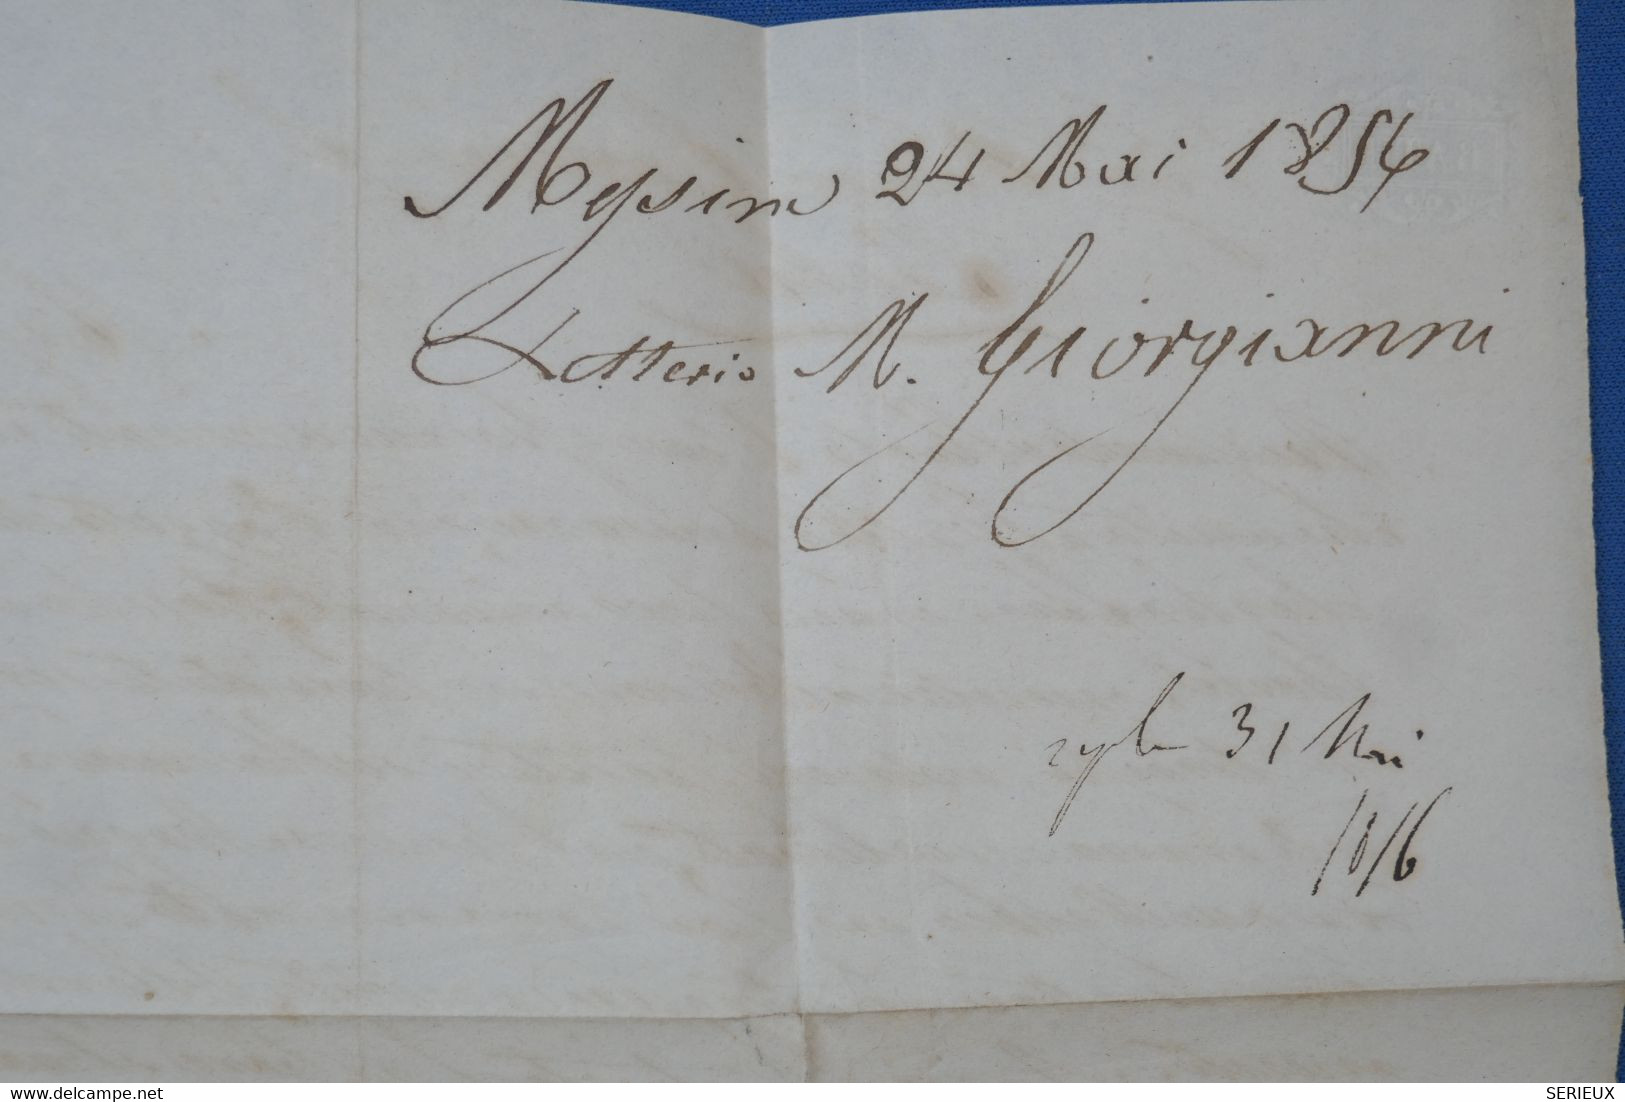 Messine 24 Mai 1856
Letterio M. Giorgianni
31 Mai
delcampe.net
SERIEUX